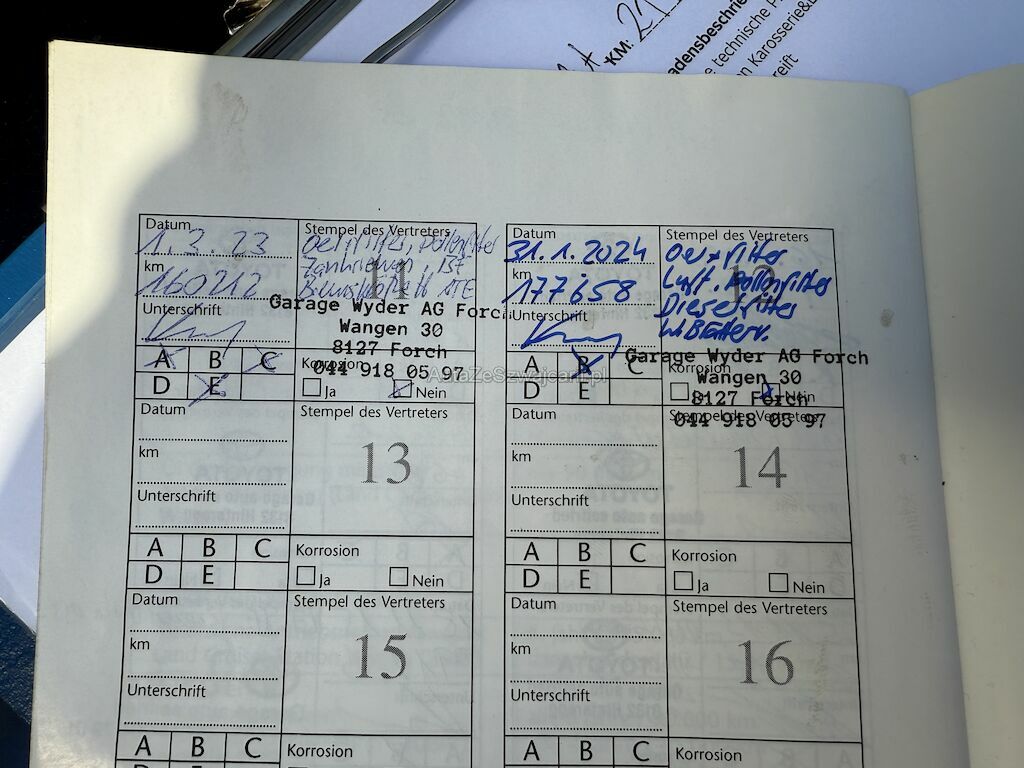 KM: 21
adensbeschrie
e technische P
n Karosserie&L
reift
Datum
1.3.23
km
160212
Unterschrift
Stempel des Vertreters
Oel, Filter, Pollenfilter
Zahnriemen, ist
11
Garage Wyder AG Forch
Wangen 30
8127 Forch
044 918 05 97
A B C
D E
Korrosion
Ja Nein
Datum
31.1.2024
km
177658
Unterschrift
Stempel des Vertreters
Oel + Filter
Luft, Pollenfilter
Dieselfilter
12
Garage Wyder AG Forch
Wangen 30
8127 Forch
044 918 05 97
A B C
D E
Nein
AutaZeSzwajcarii.pl
Datum
km
Unterschrift
Stempel des Vertreters
13
A B C
D E
Korrosion
Ja Nein
Datum
km
Unterschrift
Stempel des Vertreters
14
A B C
D E
Korrosion
Ja Nein
Datum
km
Unterschrift
Stempel des Vertreters
15
A B C
Korrosion
Datum
km
Unterschrift
Stempel des Vertreters
16
A B C
D E
Korrosion